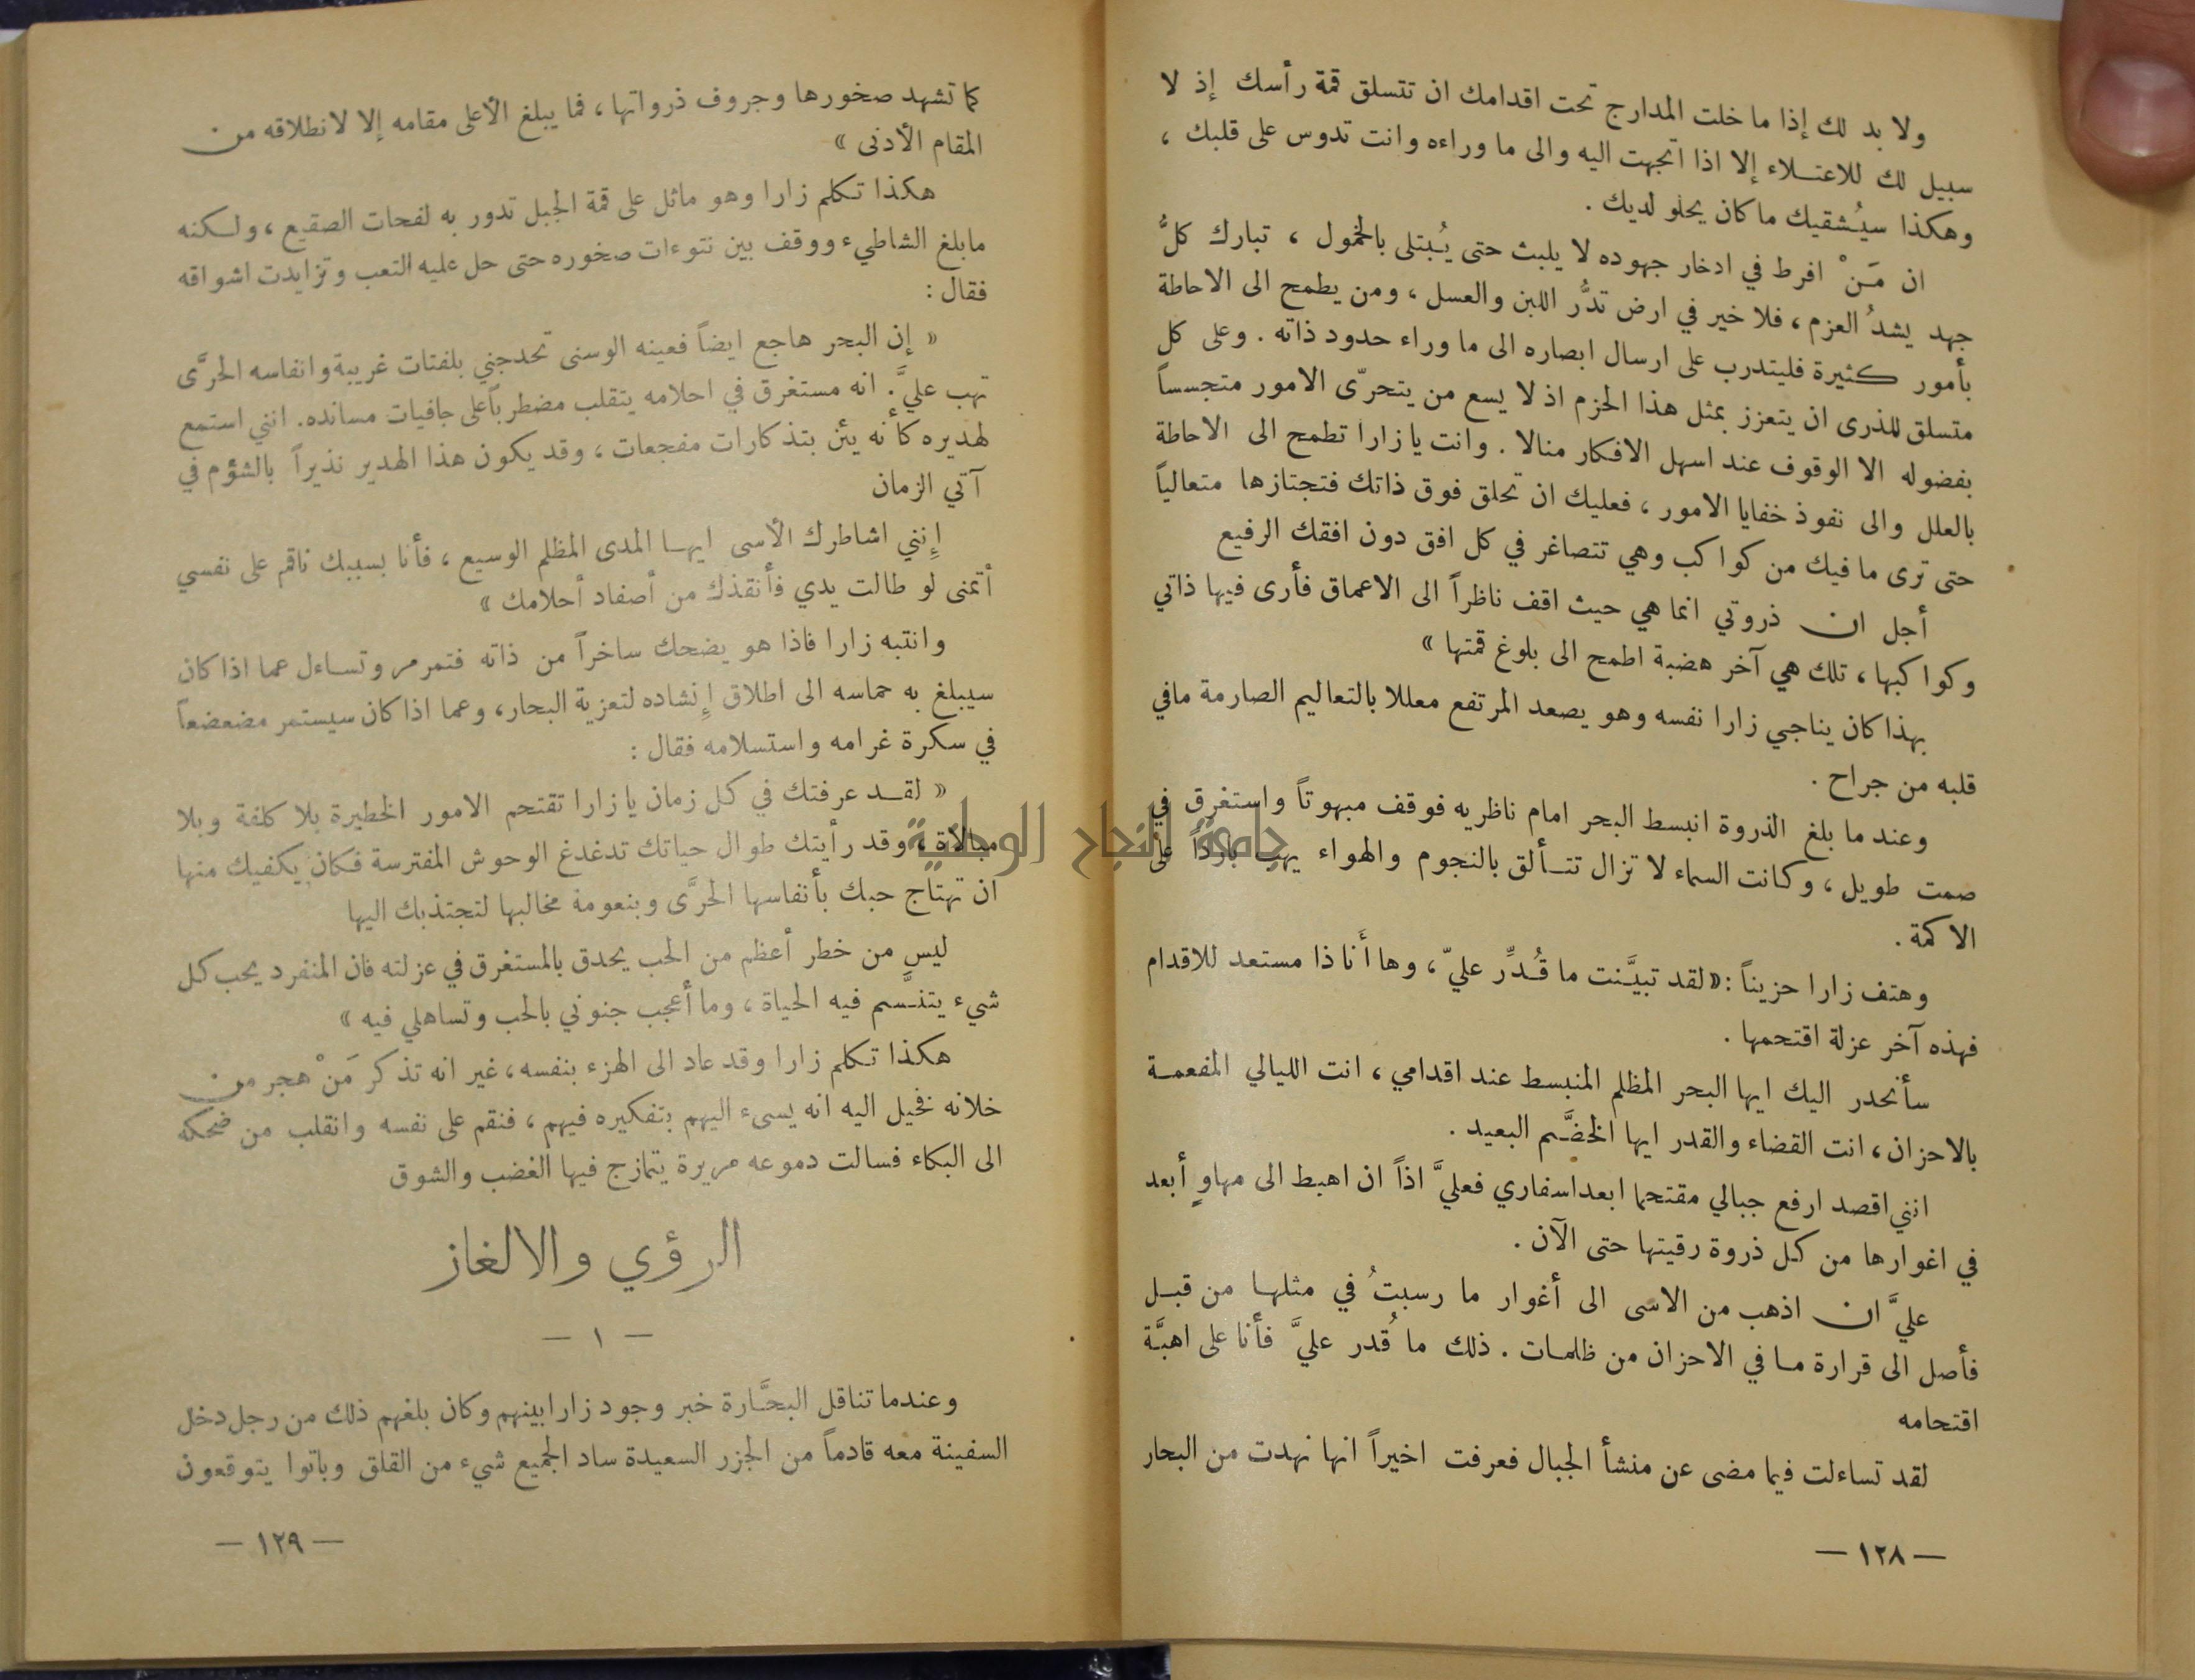 ولا بد لك إذا ما خلت المدارج تحت اقدامك ان تتسلق قمة رأسك إذ لا
سبيل لك للاعتلاء إلا اذا اتجهت اليه والى ما وراءه وانت تدوس على قلبك ،
وهكذا سيُشقيك ما كان يحلو لديك .
ان مَنْ افرط في ادخار جهوده لا يلبث حتى يُبتلى بالخمول ، تبارك كلُّ
جهد يشدُ العزم ، فلا خير في ارض تدُّر اللبن والعسل ، ومن يطمح الى الاحاطة
بأمور كثيرة فليتدرب على ارسال ابصاره الى ما وراء حدود ذاته . وعلى كل
متسلق للذرى ان يتعزز بمثل هذا الحزم اذ لا يسع من يتحرّى الامور متجسساً
بفضوله الا الوقوف عند اسهل الافكار منالا . وانت يا زارا تطمح الى الاحاطة
بالعلل والى نفوذ خفايا الامور ، فعليك ان تحلق فوق ذاتك فتجتازها متعالياً
حتى ترى ما فيك من كواكب وهي تتصاغر في كل افق دون افقك الرفيع
أجل ان ذروتي انما هي حيث اقف ناظراً الى الاعماق فأرى فيها ذاتي
وكواكبها ، تلك هي آخر هضبة اطمح الى بلوغ قمتها »
بهذا كان يناجي زارا نفسه وهو يصعد المرتفع معللا بالتعاليم الصارمة مافي
قلبه من جراح .
وعند ما بلغ الذروة انبسط البحر امام ناظريه فوقف مبهوتاً واستغرق في
صمت طويل ، وكانت السماء لا تزال تتألق بالنجوم والهواء يهب بارداً على
الاكمة .
وهتف زارا حزيناً : « لقد تبيَّنت ما قُدِّر عليّ ، وها أنا ذا مستعد للاقدام
فهذه آخر عزلة اقتحمها .
سأنحدر اليك ايها البحر المظلم المنبسط عند اقدامي ، انت الليالي المفعمة
بالاحزان ، انت القضاء والقدر ايها الخضَّم البعيد .
انني اقصد ارفع جبالي مقتحما ابعد اسفاري فعليَّ اذاً ان اهبط الى مهاوٍ أبعد
في اغوارها من كل ذروة رقيتها حتى الآن .
عليَّ ان اذهب من الاسى الى أغوار ما رسبتُ في مثلها من قبل
فأصل الى قرارة ما في الاحزان من ظلمات . ذلك ما قُدر عليَّ فأنا على اهبَّة
اقتحامه
لقد تساءلت فيما مضى عن منشأ الجبال فعرفت اخيراً انها نهدت من البحار
— ١٢٨ —
كما تشهد صخورها وجروف ذرواتها ، فما يبلغ الأعلى مقامه إلا لانطلاقه من
المقام الأدنى »
هكذا تكلم زارا وهو ماثل على قمة الجبل تدور به لفحات الصقيع ، ولكنه
مابلغ الشاطيء ووقف بين نتوءات صخوره حتى حل عليه التعب وتزايدت اشواقه
فقال :
« إن البحر هاجع ايضاً فعينه الوسنى تحدجني بلفتات غريبة وانفاسه الحرَّى
تهب عليَّ . انه مستغرق في احلامه يتقلب مضطرباً على جافيات مسانده . انني استمع
لهديره كأنه يئن بتذكارات مفجعات ، وقد يكون هذا الهدير نذيراً بالشؤم في
آتي الزمان
إنني اشاطرك الأسى ايها المدى المظلم الوسيع ، فأنا بسببك ناقم على نفسي
أتمنى لو طالت يدي فأنقذك من أصفاد أحلامك »
وانتبه زارا فاذا هو يضحك ساخراً من ذاته فتمرمر وتساءل عما اذا كان
سيبلغ به حماسه الى اطلاق إنشاده لتعزية البحار ، وعما اذا كان سيستمر مضعضعاً
في سكرة غرامه واستسلامه فقال :
« لقد عرفتك في كل زمان يا زارا تقتحم الامور الخطيرة بلا كلفة وبلا
مبالاة ، وقد رأيتك طوال حياتك تدغدغ الوحوش المفترسة فكان يكفيك منها
ان تهتاج حبك بأنفاسها الحرَّى وبنعومة مخالبها لتجتذبك اليها
ليس من خطر أعظم من الحب يحدق بالمستغرق في عزلته فان المنفرد يحب كل
شيء يتنسَّم فيه الحياة ، وما أعجب جنوني بالحب وتساهلي فيه »
هكذا تكلم زارا وقد عاد الى الهزء بنفسه ، غير انه تذكر مَنْ هجر من
خلانه فخيل اليه انه يسيء اليهم بتفكيره فيهم ، فنقم على نفسه وانقلب من ضحكه
الى البكاء فسالت دموعه مريرة يتمازج فيها الغضب والشوق
الرؤي والالغاز
— ١ —
وعندما تناقل البحَّارة خبر وجود زارا بينهم وكان بلغهم ذلك من رجل دخل
السفينة معه قادماً من الجزر السعيدة ساد الجميع شيء من القلق وباتوا يتوقعون
— ١٢٩ —
جامعة النجاح الوطنية